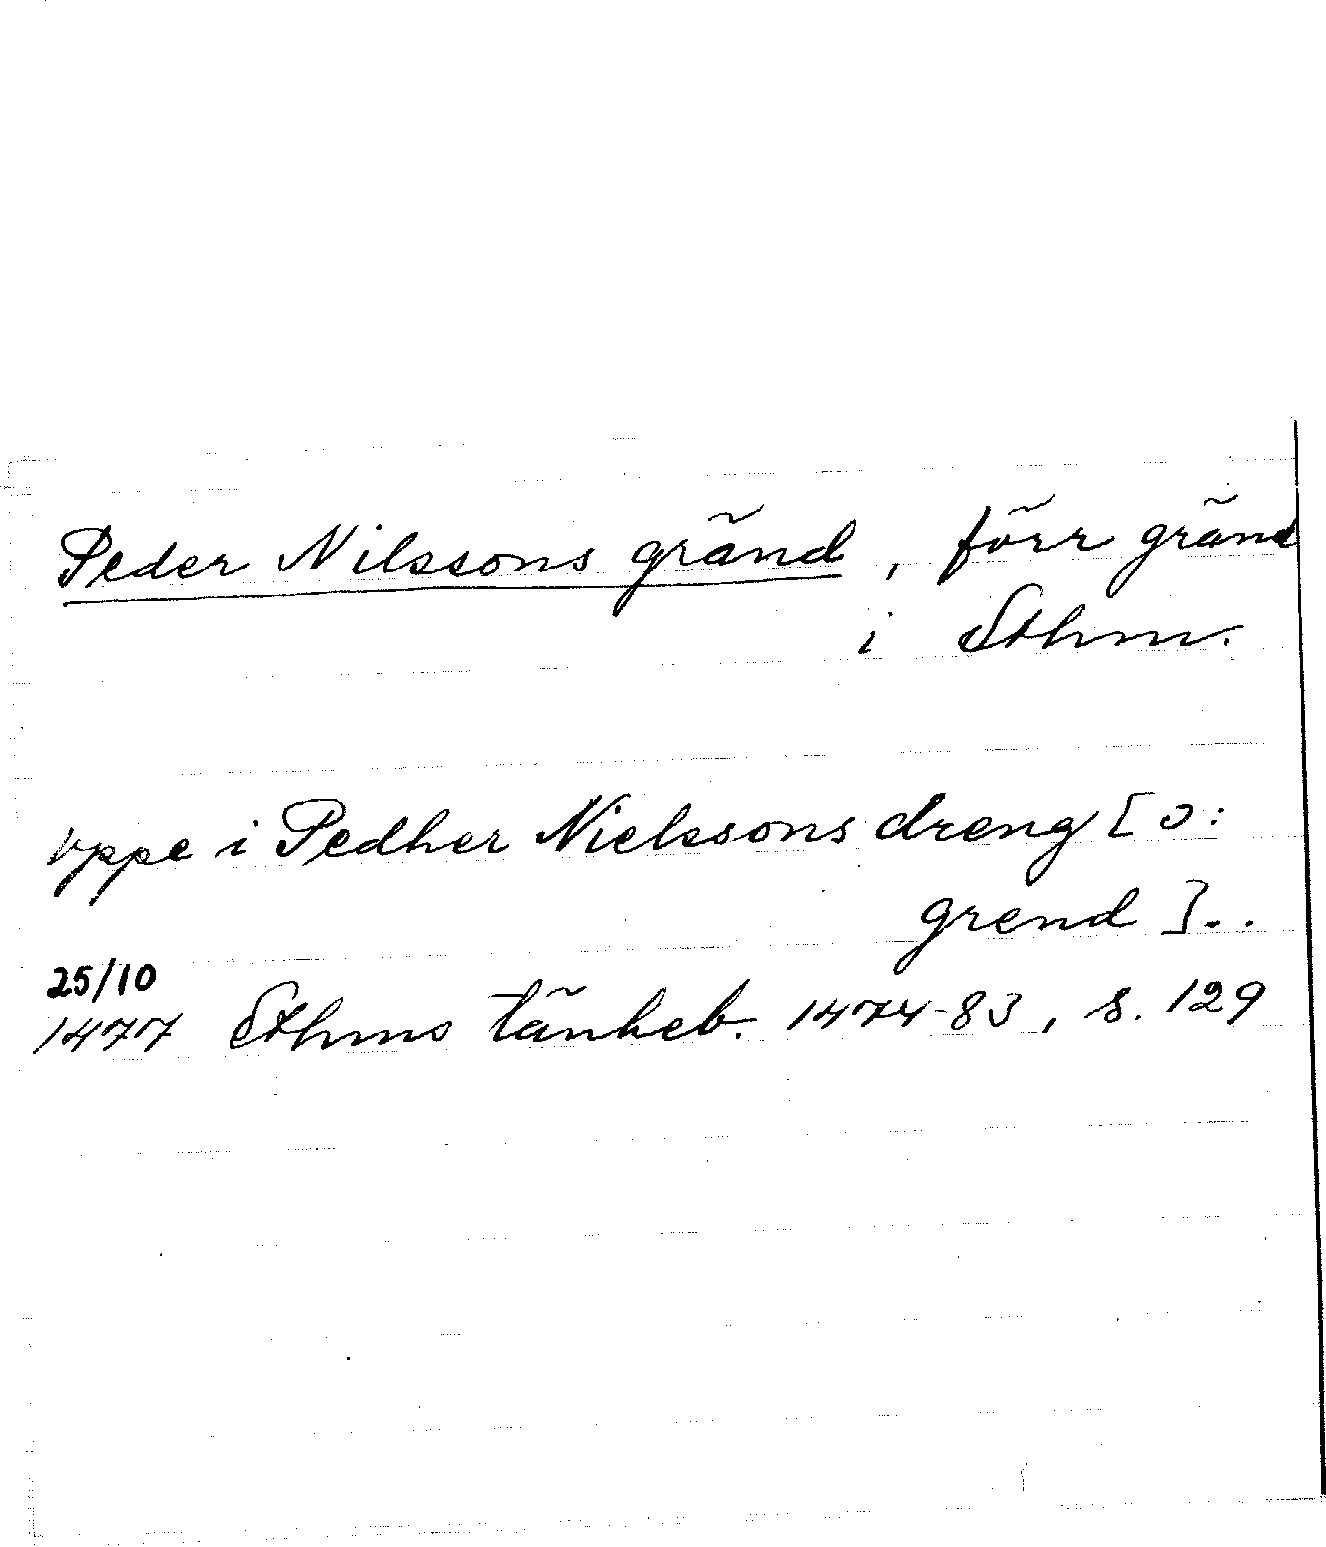 Peder Nilssons gränd, förr gränd
i Sthm.
vppe i Pedher Nielssons dreng [ɔ:
grend]..
25/10
1477 Sthms tänkeb. 1474-83, s. 129